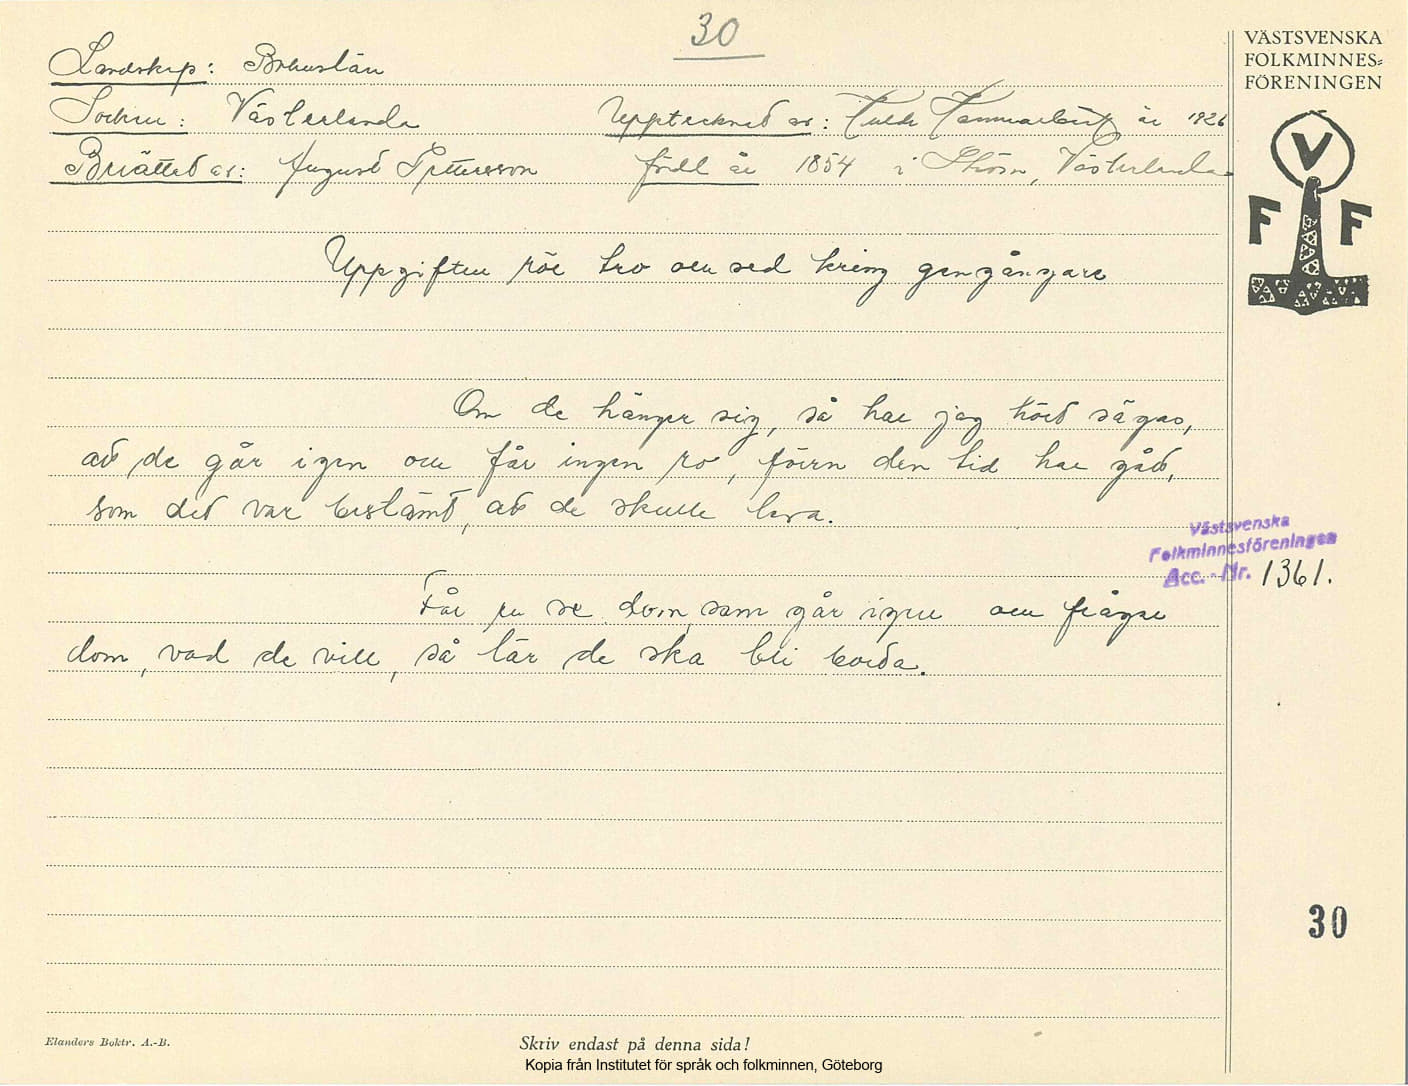 30
VÄSTSVENSKA
FOLKMINNES=
FÖRENINGEN
Landskap: Bohuslän
Socken: Västerlanda Upptecknat av: Hulda Hammarbäck år 1926
Berättat av: August Pettersson född år 1854 i Ström, Västerlanda
V
F F
Uppgiften rör tro och sed kring gengångare
Om de hänger sig, så har jag hört sägas,
att de går igen och får ingen ro, förrn den tid har gått,
som det var bestämt, att de skulle leva.
Västsvenska
Folkminnesföreningen
Acc. - Nr. 1361.
Får en se dom, som går igen och frågar
dom, vad de vill, så lär de ska bli borta.
30
Elanders Boktr. A.-B.
Skriv endast på denna sida!
Kopia från Institutet för språk och folkminnen, Göteborg